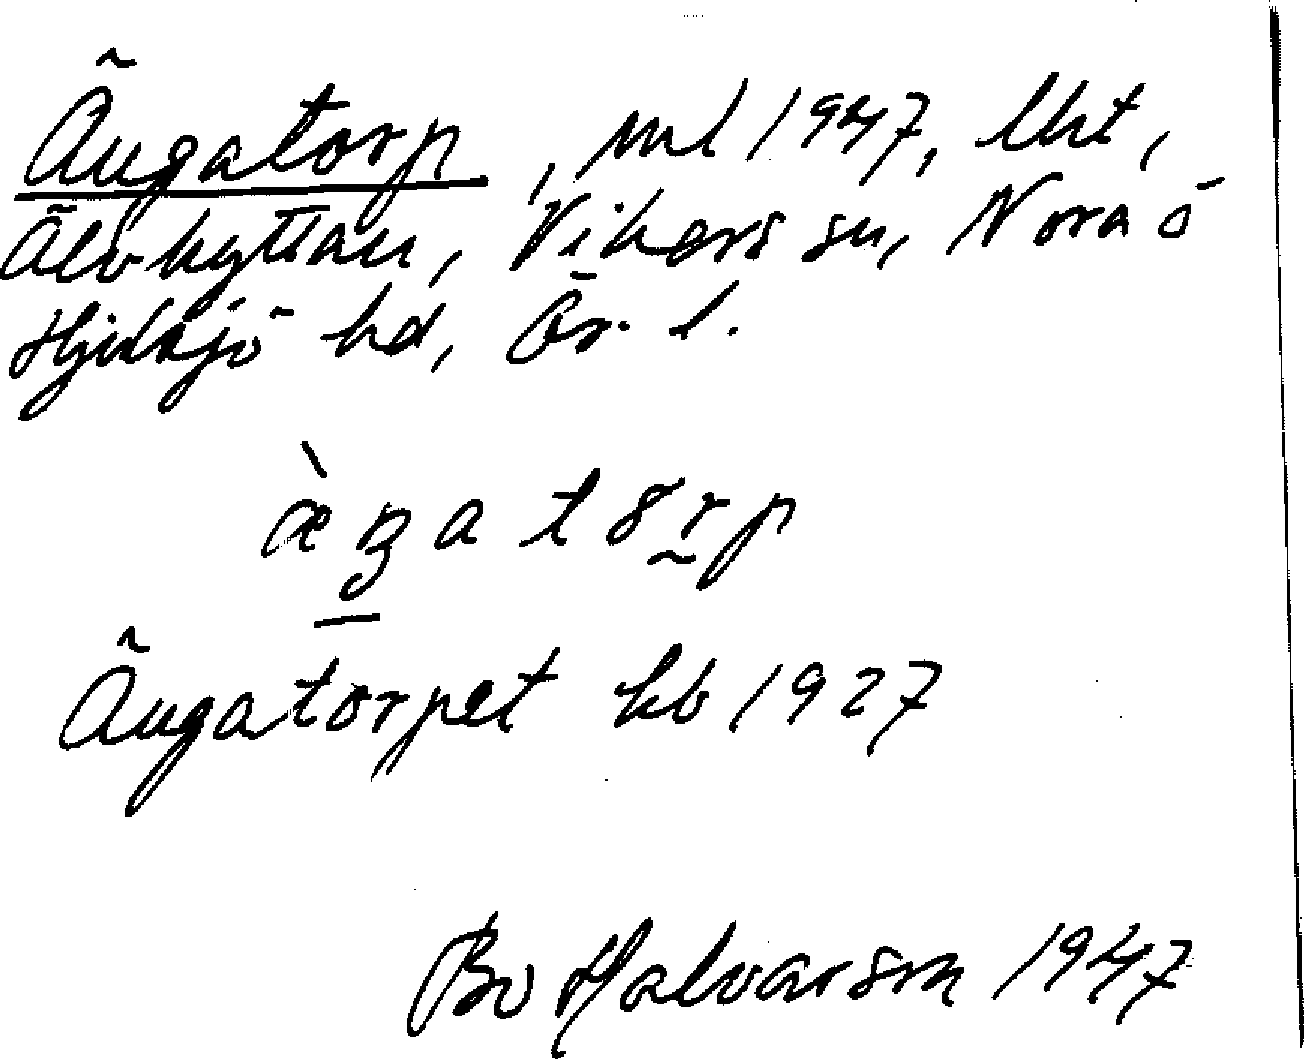 Ängatorp, uml 1947, lht,
Älvhyttan, Vikers sn, Nora o
Hjulsjö hd, Ör. l.
æ̀ŋatorp
Ängatorpet kb 1927
Bo Halvarson 1947